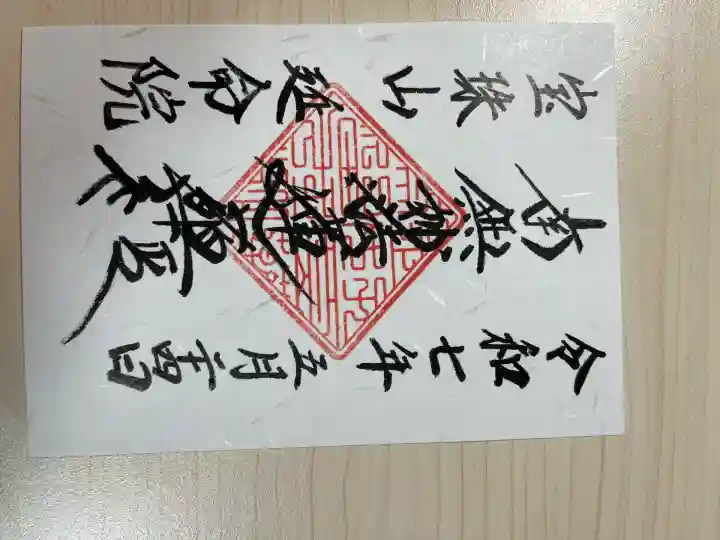 令和七年五月二十四日
南無妙法蓮華経
宝珠山延命院